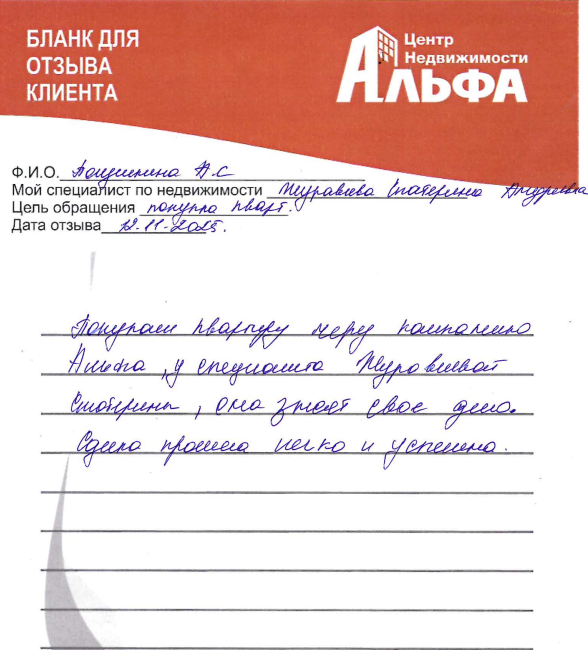 БЛАНК ДЛЯ
ОТЗЫВА
КЛИЕНТА
Центр
Недвижимости
АЛЬФА
Ф.И.О. А.С
Мой специалист по недвижимости Журавлева Екатерина Андреевна
Цель обращения покупка кварт.
Дата отзыва 12.11.2025.
Покупали квартиру через компанию
Альфа, у специалиста Журавлевой
Екатерины, она знает свое дело.
Сделка прошла легко и успешно.